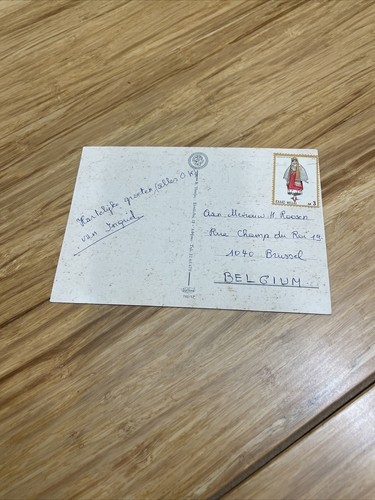 Hartelijke groeten, (alles O.K)
van Ingrid
Aan Mevrouw H. Roosen
Rue Champ du Roi 19
1040 Brussel
BELGIUM